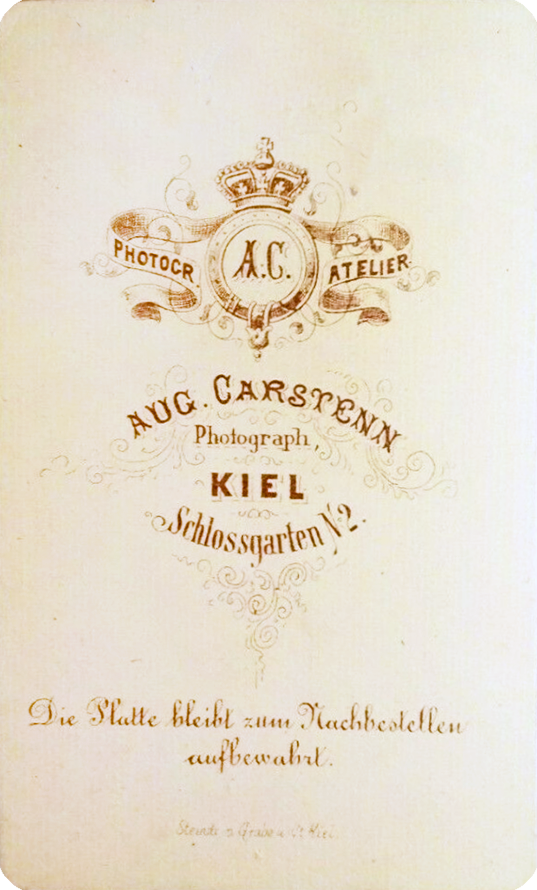 PHOTOGR A.C. ATELIER
AUG. CARSTENN
Photograph,
KIEL
Schlossgarten No 2.
Die Platte bleibt zum Nachbestellen
aufbewahrt.
Kiel